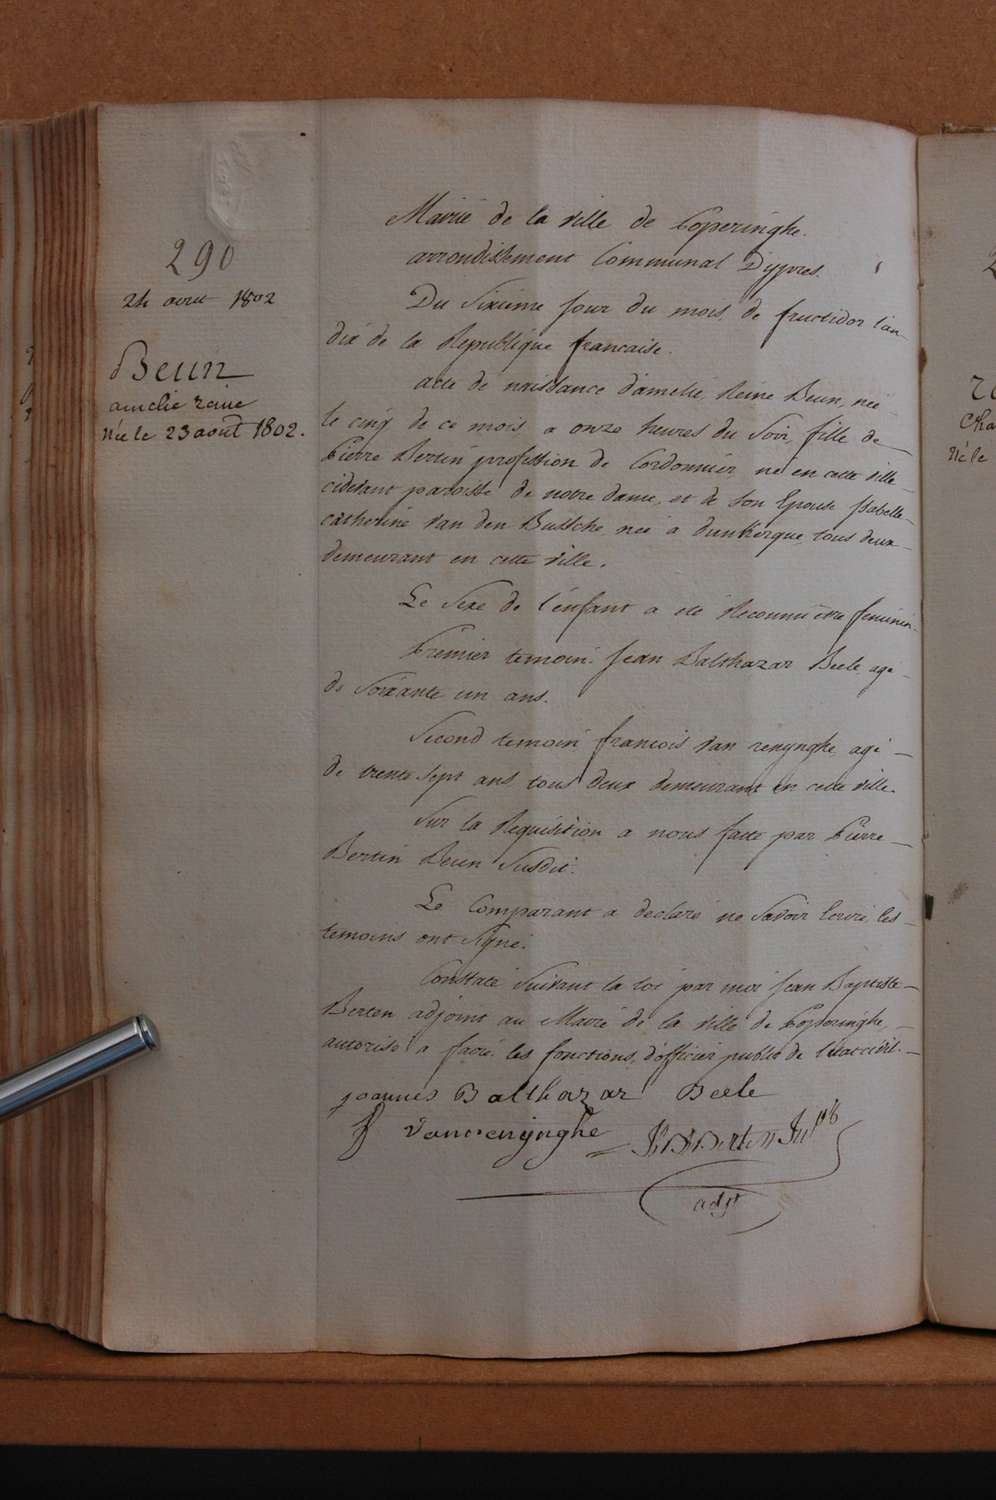 290
24 aout 1802
Beun
amelie reine
née le 23 août 1802.
Mairie de la ville de Poperinghe.
arrondissement Communal D'ypres.
Du Sixieme Jour du mois de fructidor l'an
dix de la Republique francaise.
acte de naissance d'amelie Reine Beun, née
le cinq de ce mois a onze heures du Soir, fille de
Pierre Bertin profession de Cordonnier né en cette ville
cidevant paroisse de notre dame, et de Son Epouse Isabelle
catherine Van den Bussche née a dunkerque tous deux
demeurant en cette ville.
Le Sexe de l'enfant a été Reconnu être feminin.
Premier temoin: Jean Balthazar Beele, agé
de Soixante un ans.
Second temoin francois Van renynghe, agé
de trente Sept ans tous deux demeurant en cette ville.
Sur la Requisition a nous faite par Pierre
Bertin Beun Susdit.
Le Comparant a declaré ne Savoir Ecrire, les
temoins ont Signé.
Constaté Suivant la loi par moi Jean Baptiste
Berten adjoint au Maire de la ville de Poperinghe,
autorisé a faire les fonctions d'officier public de l'état civil.
joannes Balthazar Beele
f Vanrenynghe
adjt
2
Cha
né le